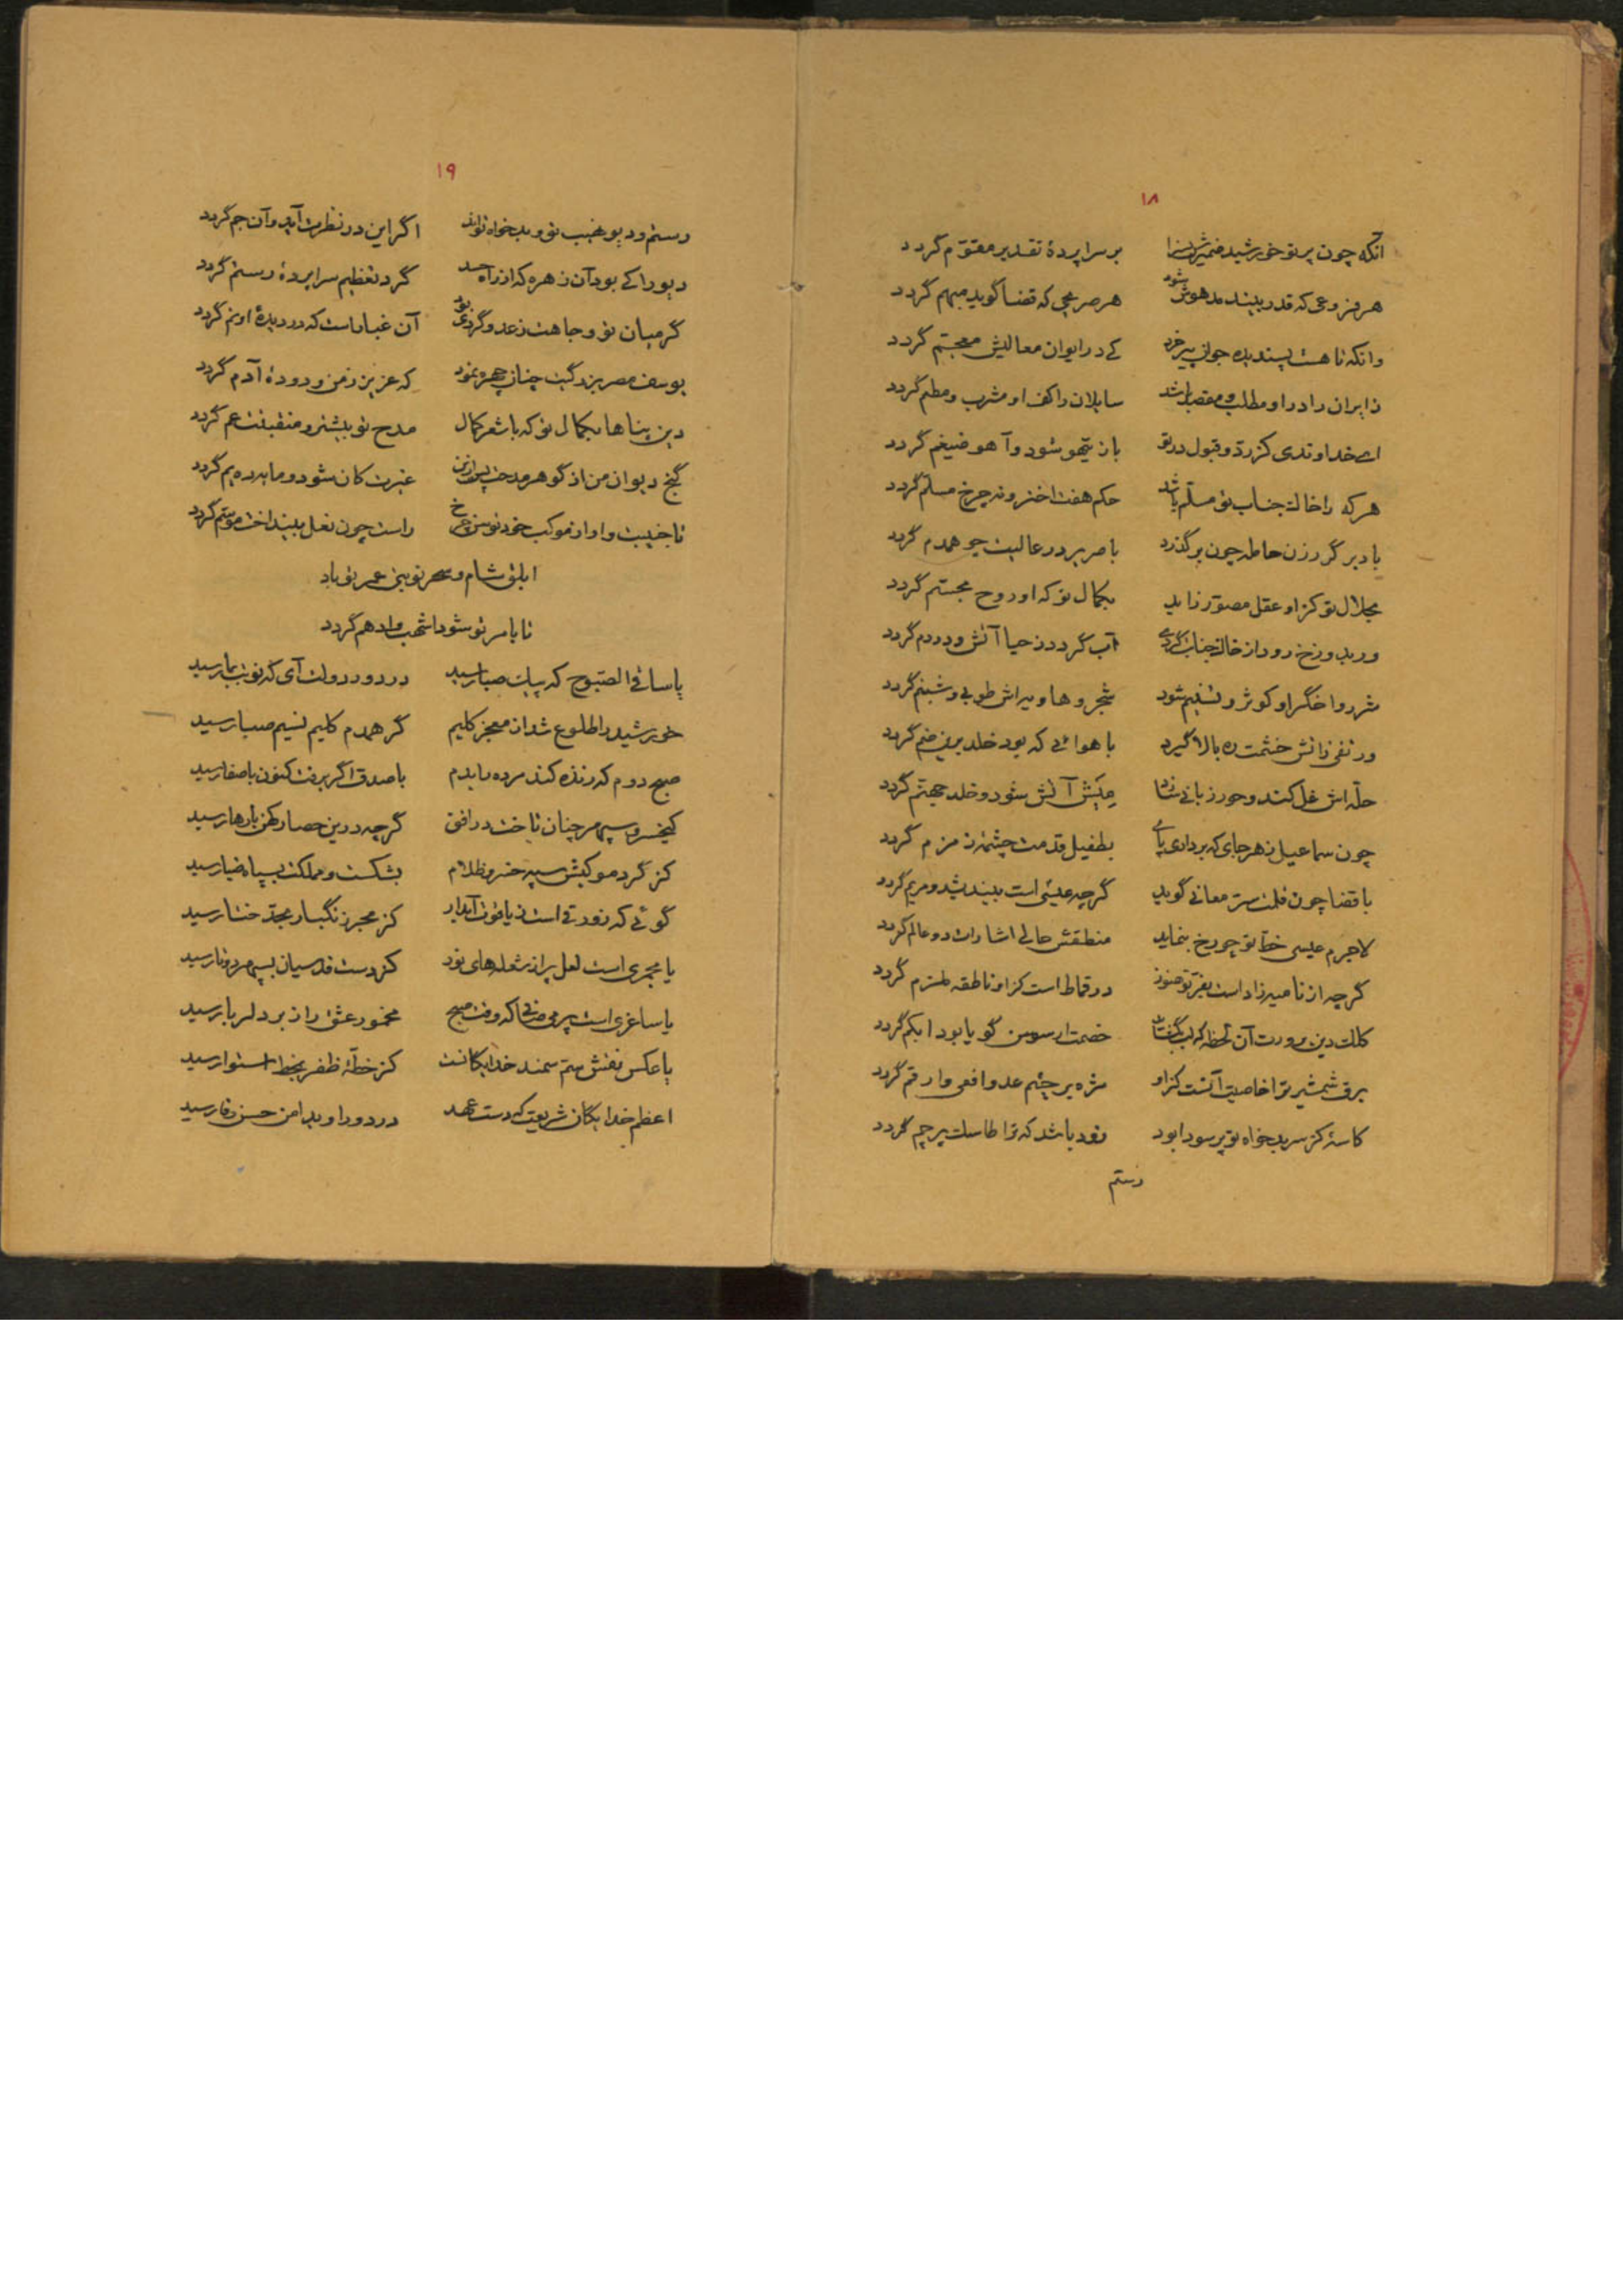 ۱۸
آنکه چون پرتو خورشید ضمیرش بر سرا پردهٔ تقدیر مقوّم گردد
هر فروعی که قدر بیند مدهوش شود هر صریحی که قضا گوید مبهم گردد
وانکه تا هست پسندیده جوان پیر خرد کی در ایوان معالیش معجّم گردد
زایران را در او مطلب و مقصد باشد سایلان را کف او مشرب و مطعم گردد
ای خداوندی کز ردّ و قبول در تو باز تیهو شود و آهو ضیغم گردد
هرکه را خاک جناب تو مسلّم باشد حکم هفت اختر و نه چرخ مسلّم گردد
باد بر گرد زن حامله چون برگذرد با صریر در عالیت چو همدم گردد
بجلال تو کز او عقل مصوّر زاید بکمال تو که او روح مجسّم گردد
ور بدوزخ رود از خاک جنابت گردی آب گردد ز حیا آتش و دردم گردد
شرر و اخگر او کوثر و تسنیم شود شجر و هاویه اش طوبی و شبنم گردد
ور تفی زآتش خشمت ره بالا گیرد با هوائی که بود خلد برین ضم گردد
حلّه اش غل کند و حور زبانی عیش آتش شود و خلد جهنّم گردد
چون سماعیل ز هر جای که برداری پای بطفیل قدمت چشمهٔ زمزم گردد
با قضا چون قلمت سرّ معانی گوید گرچه عیسی است بیند شد و مریم گردد
لاجرم عیسی خطّ تو چو رخ بنماید منطقش حالی اشارات دو عالم گردد
گرچه از نامیه زاد است بفرّ تو هنوز در قماط است کز او ناطقه ملتزم گردد
کلک دین پرورت آن لحظه که لب بگشاید خصمت ار سوسن گویا بود ابکم گردد
برق شمشیر ترا خاصیت آنست کز او مژه بر چشم عدو افعی و ارقم گردد
کاسهٔ کز سر بدخواه تو پر سودا بود زود باشد که ترا طاسک پرچم گردد
رستم
۱۹
رستم و دیو نهیب تو و بدخواه تواند اگر این در نظرت آید و آن جم گردد
دیو را کی بود آن زهره که از راه حسد گرد تعظیم سراپردهٔ رستم گردد
گر میان تو و جاهت ز عدو گردی بود آن غبار است که در دیدهٔ او نم گردد
یوسف مصر بزرگیت چنان چهره نمود که عزیز زمن و دودهٔ آدم گردد
دین پناها بکمال تو که با شعر کمال مدح تو بیشتر و منقبتت عم گردد
گنج دیوان من از گوهر مدحت پس ازین غیرت کان شود و مایه ده یم گردد
تا جنیبت وا او از موکب خود توسن چرخ راست چون نعل ببیند اختر موسم گردد
ابلق شام و سحر توسن عمر تو باد
تا بامر تو شود اشهب و ادهم گردد
یا ساقی الصّبوح که پیک صبا رسید در دور دولت آی که نوبت بما رسید
خورشید را طلوع شد از معجز کلیم گر همدم کلیم نسیم صبا رسید
صبح دوم که زنده کند مرده را بدم با صدق اگر برفت کنون با صفا رسید
کیخسرو سپهر چنان تاخت در افق گرچه درین حصار کهن بارها رسید
کز گرد موکبش سپه خنر و ظلام بشکست و مملکت بسپاه ضیا رسید
گوئی که زورقی است ز یاقوت آبدار کز مجر زنگبار بحدّ ختا رسید
یا مجمری است لعل پر از شعله های نور کز دست قدسیان بسپهر دوتا رسید
یا ساغری است پر می صافی که وقت صبح مخمور عشق را ز بر دلربا رسید
یا عکس نقش سمّ سمند خدایگانست کز خطّهٔ ظفر بخط استوا رسید
اعظم خدایگان شریعت که دست عهد در دور او بدامن حسن وفا رسید